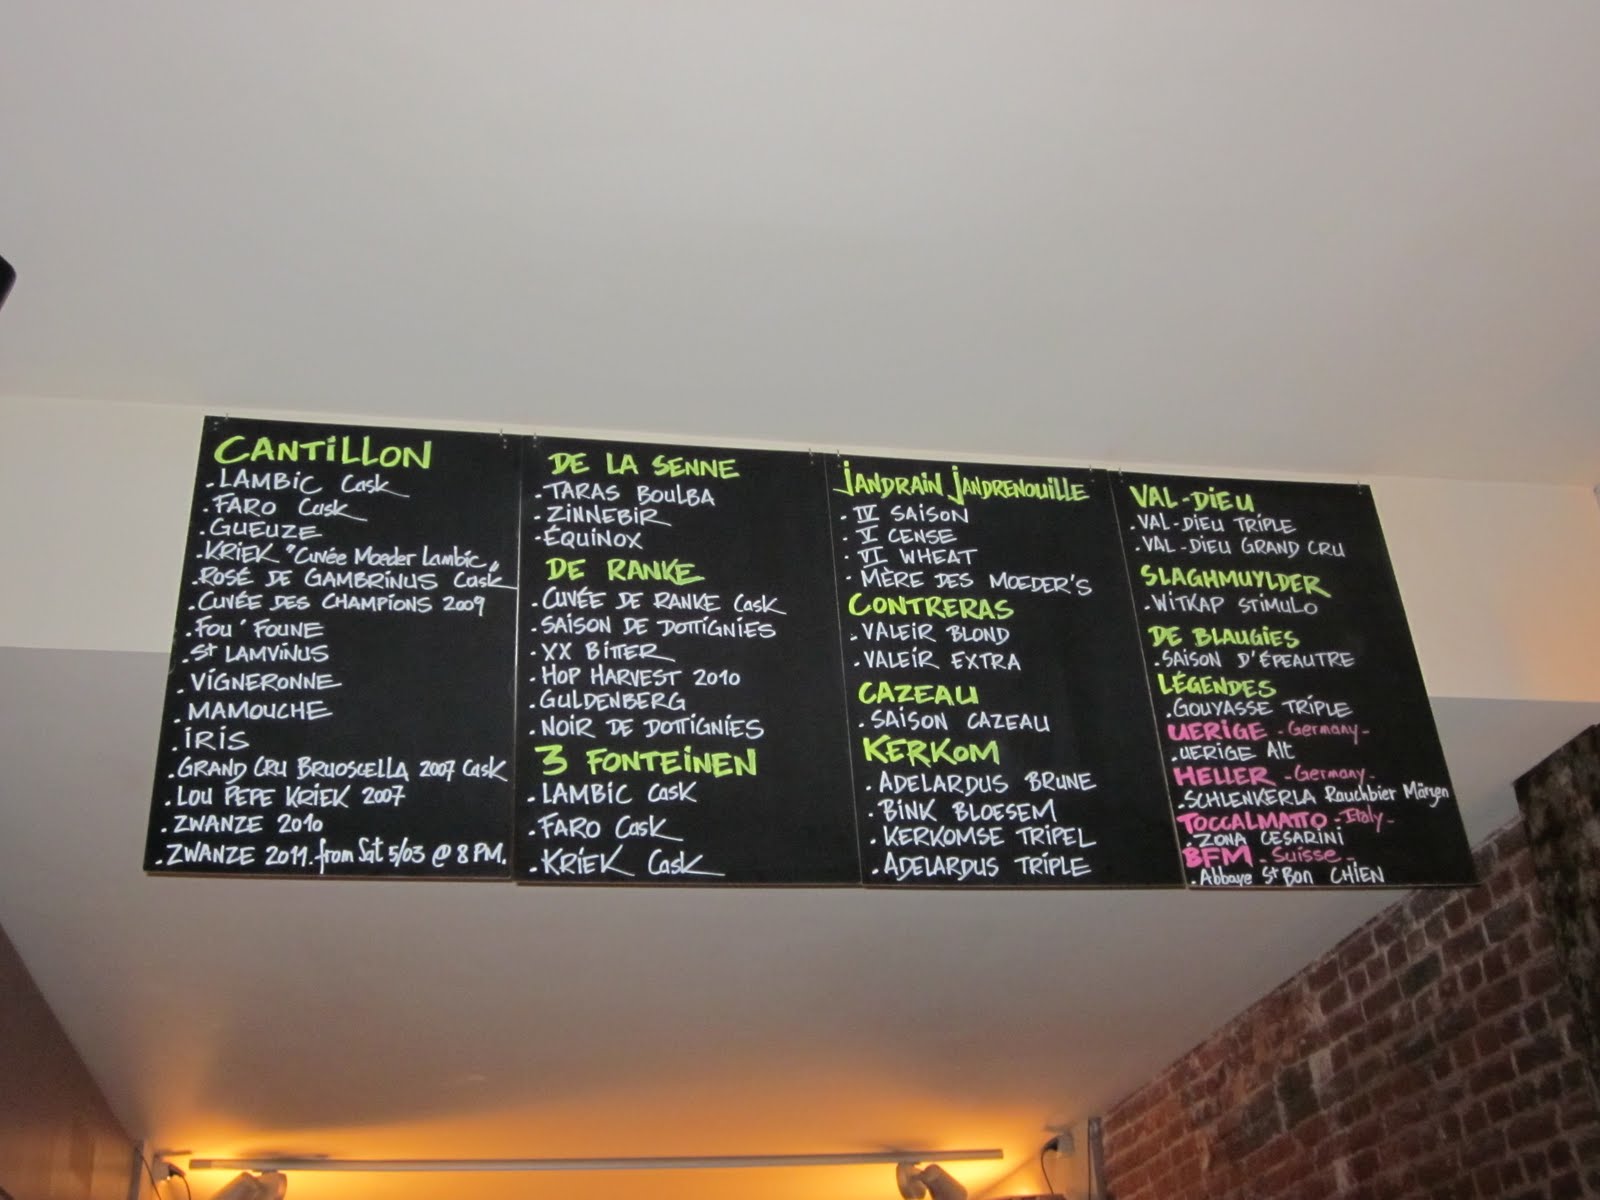 CANTILLON
. LAMBIC Cask
. FARO Cask
. GUEUZE
. KRIEK "Cuvée Moeder Lambic"
. ROSÉ DE GAMBRINUS Cask
. CUVÉE DES CHAMPIONS 2009
. FOU' FOUNE
. St LAMVINUS
. VIGNERONNE
. MAMOUCHE
. IRIS
. GRAND CRU BRUOSCELLA 2007 Cask
. LOU PEPE KRIEK 2007
. ZWANZE 2010
. ZWANZE 2011. from Sat 5/03 @ 8 PM.
DE LA SENNE
. TARAS BOULBA
. ZINNEBIR
. ÉQUINOX
DE RANKE
. CUVÉE DE RANKE Cask
. SAISON DE DOTTIGNIES
. XX BITTER
. HOP HARVEST 2010
. GULDENBERG
. NOIR DE DOTTIGNIES
3 FONTEINEN
. LAMBIC Cask
. FARO Cask
. KRIEK Cask
JANDRAIN JANDRENOUILLE
. IV SAISON
. V CENSE
. VI WHEAT
. MÈRE DES MOEDER'S
CONTRERAS
. VALEIR BLOND
. VALEIR EXTRA
CAZEAU
. SAISON CAZEAU
KERKOM
. ADELARDUS BRUNE
. BINK BLOESEM
. KERKOMSE TRIPEL
. ADELARDUS TRIPLE
VAL-DIEU
. VAL-DIEU TRIPLE
. VAL-DIEU GRAND CRU
SLAGHMUYLDER
. WITKAP STIMULO
DE BLAUGIES
. SAISON D'ÉPEAUTRE
LÉGENDES
. GOUYASSE TRIPLE
UERIGE - Germany -
. UERIGE Alt
HELLER - Germany -
. SCHLENKERLA Rauchbier Märzen
TOCCALMATTO - Italy -
. ZONA CESARINI
BFM - Suisse -
. Abbaye St BON CHIEN